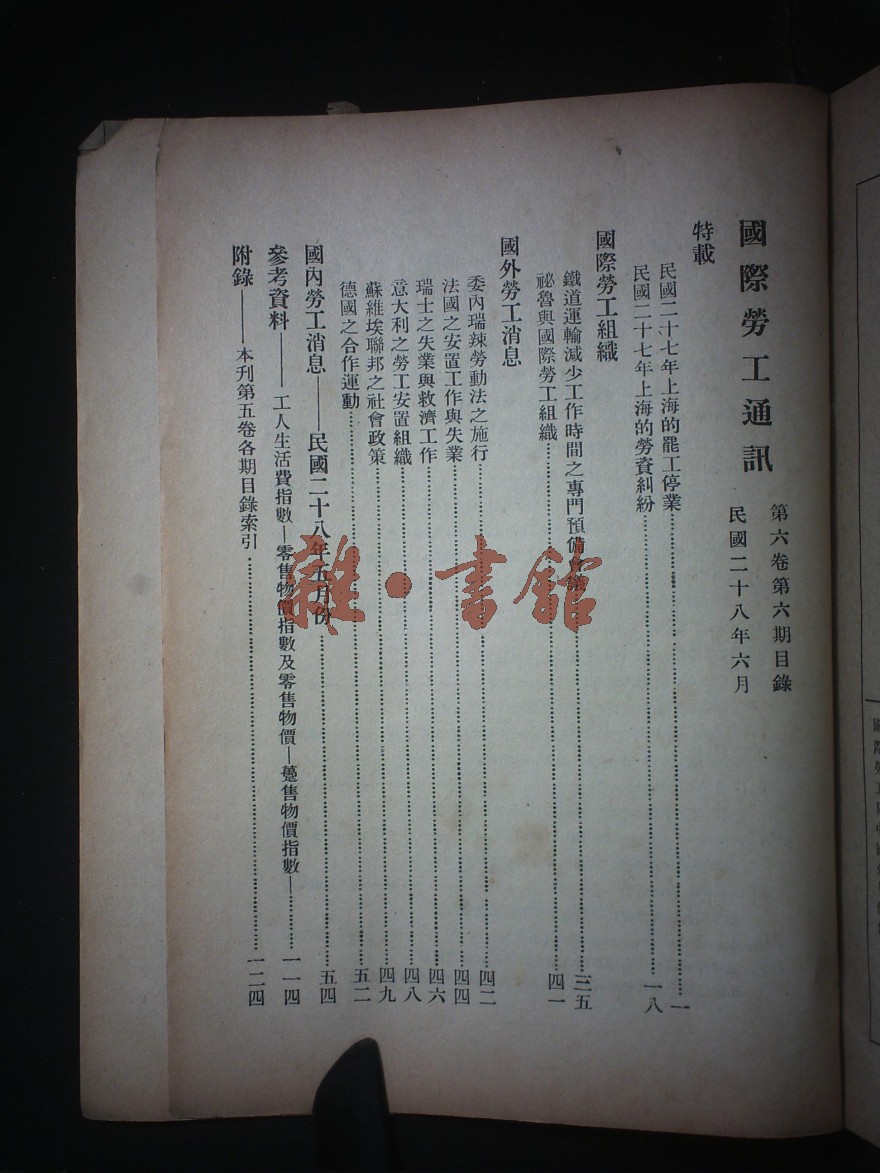 國際勞工通訊
第六卷第六期目錄
民國二十八年六月
特載
民國二十七年上海的罷工停業……一
民國二十七年上海的勞資糾紛……一八
國際勞工組織
鐵道運輸減少工作時間之專門預備會議……三五
祕魯與國際勞工組織……四一
國外勞工消息
委內瑞辣勞動法之施行……四二
法國之安置工作與失業……四四
瑞士之失業與救濟工作……四六
意大利之勞工安置組織……四八
蘇維埃聯邦之社會政策……四九
德國之合作運動……五二
國內勞工消息——民國二十八年五月份……五四
參考資料——工人生活費指數—零售物價指數及零售物價—躉售物價指數—……一一四
附錄——本刊第五卷各期目錄索引……一二四
雜·書館